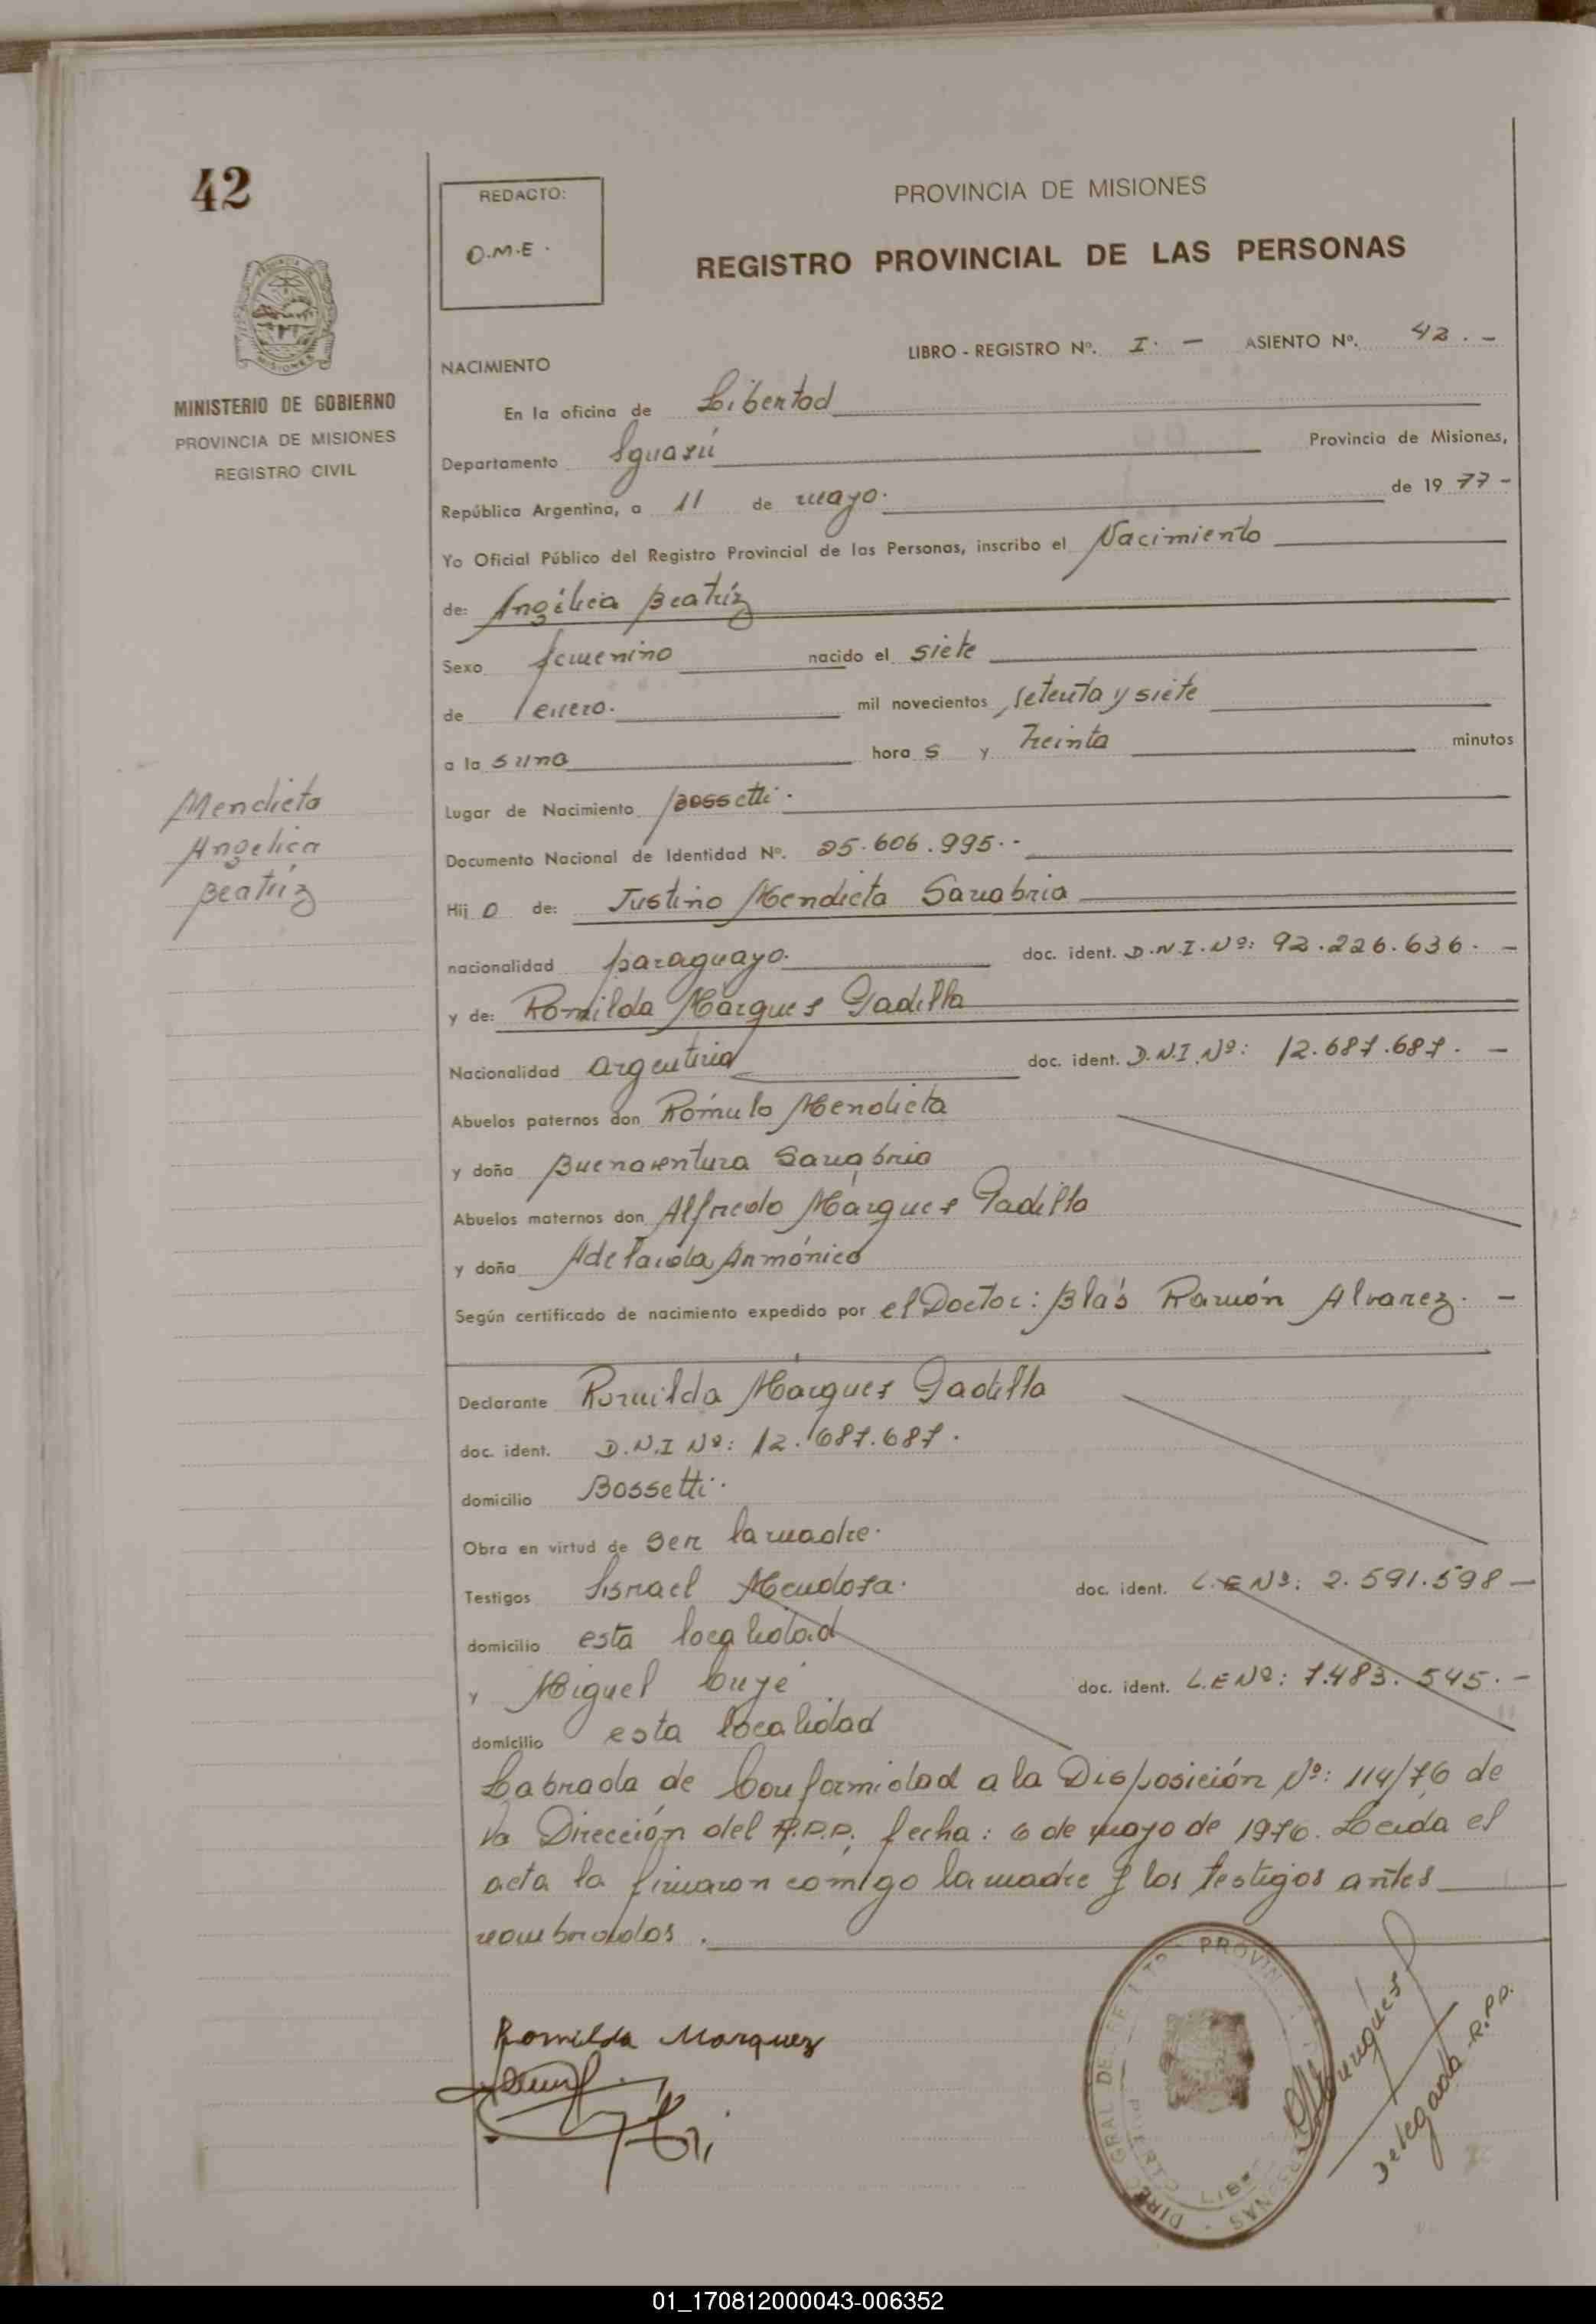 42
REDACTO:
O.M.E.
PROVINCIA DE MISIONES
REGISTRO PROVINCIAL DE LAS PERSONAS
MINISTERIO DE GOBIERNO
PROVINCIA DE MISIONES
REGISTRO CIVIL
NACIMIENTO
LIBRO - REGISTRO Nº. I. — ASIENTO Nº. 42. -
En la oficina de Libertad
Departamento Iguazú Provincia de Misiones,
República Argentina, a 11 de mayo. de 19 77 -
Yo Oficial Público del Registro Provincial de las Personas, inscribo el Nacimiento
de: Angélica Beatríz
Sexo femenino nacido el siete
de enero. mil novecientos setenta y siete
a la s una hora s y Treinta minutos
Lugar de Nacimiento Bossetti.
Documento Nacional de Identidad Nº. 25.606.995.-
Mendieta
Angelica
Beatríz
Hij o de: Justino Mendieta Sanabria
nacionalidad paraguayo. doc. ident. D.N.I.Nº: 92.226.636. -
y de: Romilda Márques Padilla
Nacionalidad argentina doc. ident. D.N.I.Nº: 12.687.687. —
Abuelos paternos don Rómulo Mendieta
y doña Buenaventura Sanabria
Abuelos maternos don Alfredo Márques Padilla
y doña Adelaida Armónico
Según certificado de nacimiento expedido por el Doctor: Blás Ramón Alvarez. —
Declarante Romilda Márques Padilla
doc. ident. D.N.I Nº: 12.687.687.
domicilio Bossetti.
Obra en virtud de ser la madre.
Testigos Isrrael Mendosa. doc. ident. L.E Nº: 2.591.598 —
domicilio esta localidad
y Miguel Cuyé doc. ident. L.E Nº: 7.483.545. -
domicilio esta localidad
Labrada de Conformidad a la Disposición Nº: 114/76 de
la Dirección del R.P.P. fecha: 6 de mayo de 1976. Leida el
acta la firmaron comigo la madre y los testigos antes
nombrados.
Romilda Marquez
Delegada R.P.P.
01_170812000043-006352